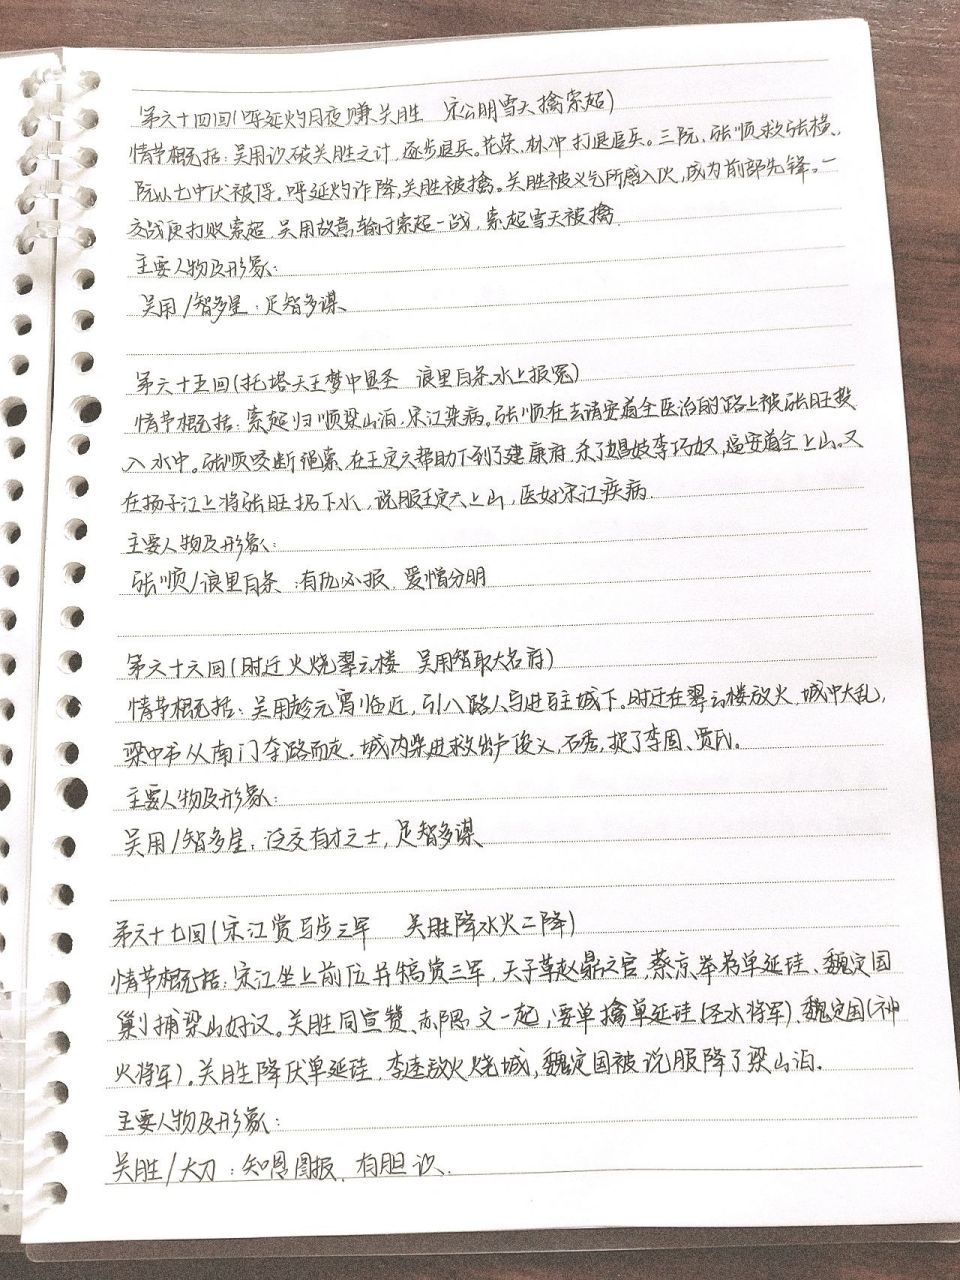 第六十四回(呼延灼月夜赚关胜 宋公明雪天擒索超)
情节概括:吴用识破关胜之计,逐步退兵。花荣、林冲打退追兵。三阮、张顺救张横、
阮小七中伏被俘。呼延灼诈降,关胜被擒。关胜被义气所感入伙,成为前部先锋。一
交战便打败索超.吴用故意输于索超一战,索超雪天被擒.
主要人物及形象:
吴用/智多星:足智多谋
第六十五回(托塔天王梦中显圣 浪里白条水上报冤)
情节概括:索超归顺梁山泊,宋江染病。张顺在去请安道全医治的路上被张旺投
入水中。张顺咬断绳索,在王定六帮助下到了建康府.杀了娼妓李巧奴,逼安道全上山。又
在扬子江上将张旺扔下水,说服王定六上山,医好宋江疾病.
主要人物及形象:
张顺/浪里白条:有仇必报 爱憎分明
第六十六回(时迁火烧翠云楼 吴用智取大名府)
情节概括:吴用趁元宵临近,引八路人马进驻城下。时迁在翠云楼放火,城中大乱,
梁中书从南门夺路而走.城内柴进救出卢俊义,石秀,捉了李固、贾氏。
主要人物及形象:
吴用/智多星:泛交有才之士,足智多谋
第六十七回(宋江赏马步三军 关胜降水火二将)
情节概括:宋江坐上前位并犒赏三军,天子革赵鼎之官,蔡京举荐单廷珪、魏定国
剿捕梁山好汉。关胜同宣赞、郝思文一起,要单擒单延珪(圣水将军)、魏定国(神
火将军).关胜降伏单延珪,李逵放火烧城,魏定国被说服降了梁山泊.
主要人物及形象:
关胜/大刀:知恩图报.有胆识.